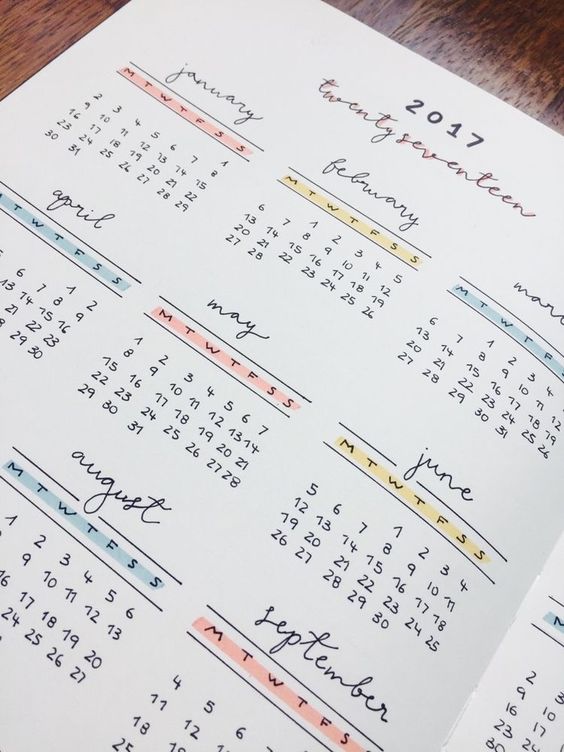 2017
twenty seventeen
january
M T W T F S S
1
2 3 4 5 6 7 8
9 10 11 12 13 14 15
16 17 18 19 20 21 22
23 24 25 26 27 28 29
30 31
february
M T W T F S S
1 2 3 4 5
6 7 8 9 10 11 12
13 14 15 16 17 18 19
20 21 22 23 24 25 26
27 28
marc
M T W T F
1 2 3 4
6 7 8 9 10 11 12
13 14 15 16 17 18 19
20 21 22 23 24 25 26
27 28 29 30 31
april
T F S S
1 2
6 7 8 9
13 14 15 16
21 22 23
28 29 30
may
M T W T F S S
1 2 3 4 5 6 7
8 9 10 11 12 13 14
15 16 17 18 19 20 21
22 23 24 25 26 27 28
29 30 31
june
M T W T F S S
1 2 3 4
5 6 7 8 9 10 11
12 13 14 15 16 17 18
19 20 21 22 23 24 25
26 27 28 29 30
august
M T W T F S S
1 2 3 4 5 6
9 10 11 12 13
17 18 19 20
24 25 26 27
september
M T W T F S
4 5 6